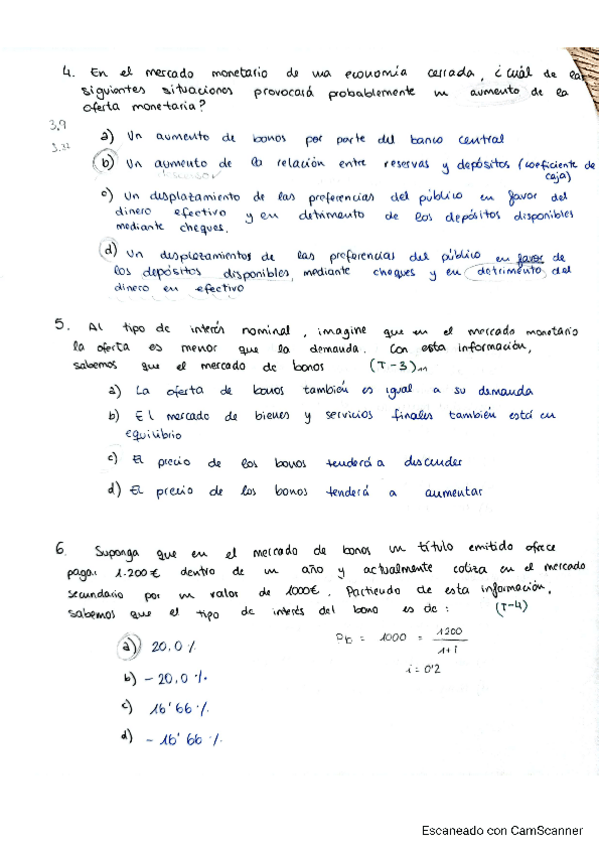 4. En el mercado monetario de una economía cerrada, ¿cuál de las
siguientes situaciones provocará probablemente un aumento de la
oferta monetaria?
3,9
a) Un aumento de bonos por parte del banco central
b) Un aumento de la relación entre reservas y depósitos (coeficiente de
caja)
c) Un desplazamiento de las preferencias del público en favor del
dinero efectivo y en detrimento de los depósitos disponibles
mediante cheques.
d) Un desplazamientos de las preferencias del público en favor de
los depósitos disponibles mediante cheques y en detrimento del
dinero en efectivo
5. Al tipo de interés nominal, imagine que en el mercado monetario
la oferta es menor que la demanda. Con esta información,
sabemos que el mercado de bonos (T-3)
a) La oferta de bonos también es igual a su demanda
b) El mercado de bienes y servicios finales también está en
equilibrio
c) El precio de los bonos tenderá a descender
d) El precio de los bonos tenderá a aumentar
6. Suponga que en el mercado de bonos un título emitido ofrece
pagar 1.200€ dentro de un año y actualmente cotiza en el mercado
secundario por un valor de 1000€. Partiendo de esta información,
sabemos que el tipo de interés del bono es de: (T-4)
a) 20,0%
Pb = 1000 = 1200 / 1+i
i = 0'2
b) -20,0%
c) 16'66%
d) -16'66%
Escaneado con CamScanner